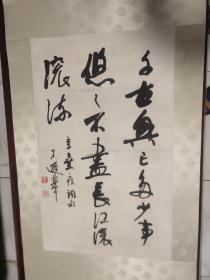 千古興亡多少事
悠々不盡長江滾
滾流
辛棄疾詞句